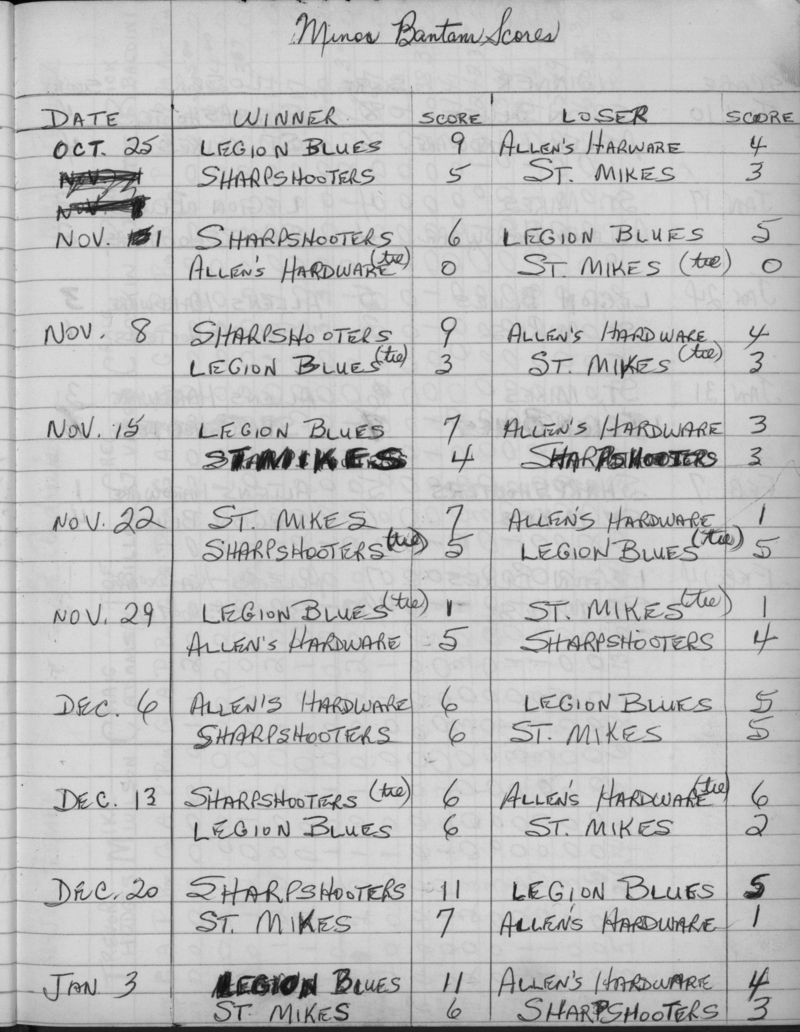 Minor Bantam Scores
DATE WINNER SCORE LOSER SCORE
OCT. 25 LEGION BLUES 9 ALLEN'S HARWARE 4
SHARPSHOOTERS 5 ST. MIKES 3
NOV. 1 SHARPSHOOTERS 6 LEGION BLUES 5
ALLEN'S HARDWARE (tie) 0 ST. MIKES (tie) 0
NOV. 8 SHARPSHOOTERS 9 ALLEN'S HARDWARE 4
LEGION BLUES (tie) 3 ST. MIKES (tie) 3
NOV. 15 LEGION BLUES 7 ALLEN'S HARDWARE 3
ST. MIKES 4 SHARPSHOOTERS 3
NOV. 22 ST. MIKES 7 ALLEN'S HARDWARE 1
SHARPSHOOTERS (tie) 5 LEGION BLUES (tie) 5
NOV. 29 LEGION BLUES (tie) 1 ST. MIKES (tie) 1
ALLEN'S HARDWARE 5 SHARPSHOOTERS 4
DEC. 6 ALLEN'S HARDWARE 6 LEGION BLUES 5
SHARPSHOOTERS 6 ST. MIKES 5
DEC. 13 SHARPSHOOTERS (tie) 6 ALLEN'S HARDWARE (tie) 6
LEGION BLUES 6 ST. MIKES 2
DEC. 20 SHARPSHOOTERS 11 LEGION BLUES 5
ST. MIKES 7 ALLEN'S HARDWARE 1
JAN 3 LEGION BLUES 11 ALLEN'S HARDWARE 4
ST. MIKES 6 SHARPSHOOTERS 3